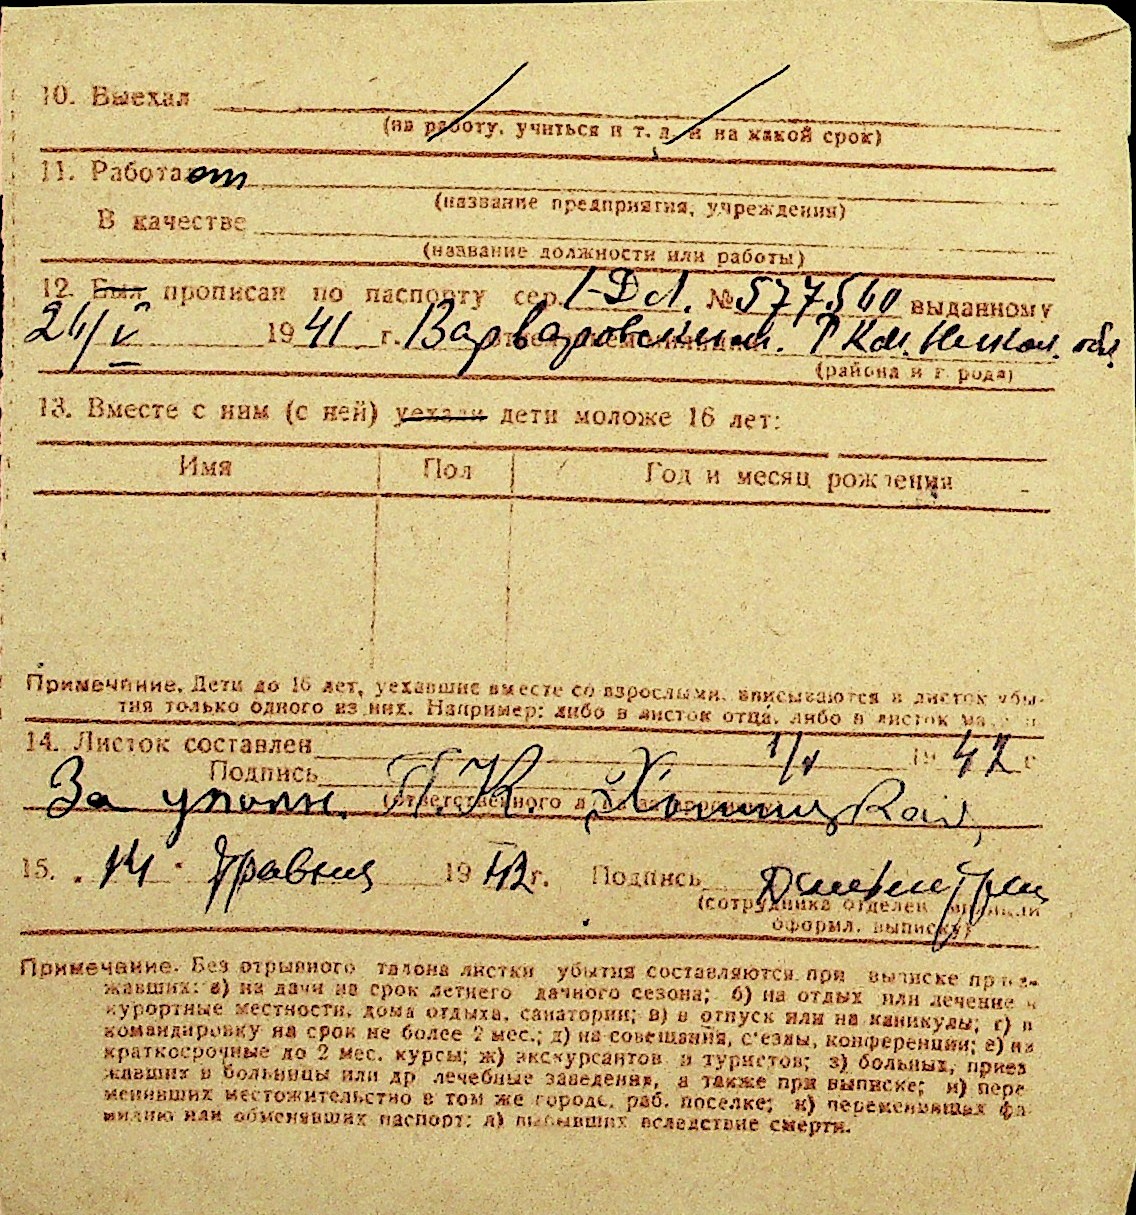 10. Выехал
(на работу, учиться и т. д. и на какой срок)
11. Работает
(название предприятия, учреждения)
В качестве
(название должности или работы)
12. Был прописан по паспорту сер. № 577540 выданному
24/V 1941 г. Варваровским. Р.К.М. Никол. обл.
(района и города)
13. Вместе с ним (с ней) уехали дети моложе 16 лет:
Имя Пол Год и месяц рождения
Примечание. Дети до 16 лет, уехавшие вместе со взрослыми, вписываются в листок убы-
тия только одного из них. Например: либо в листок отца, либо в листок
14. Листок составлен 1/V 1942 г
Подпись
За уполн. П.К.
(ответственного
15. 14 Травня 1942 г. Подпись
(сотрудника отделен
оформл. выписку)
Примечание. Без отрывного талона листки убытия составляются при выписке приез-
жавших: а) на дачи на срок летнего дачного сезона; б) на отдых или лечение в
курортные местности, дома отдыха, санатории; в) в отпуск или на каникулы; г) в
командировку на срок не более 2 мес.; д) на совещания, с'езды, конференции; е) на
краткосрочные до 2 мес. курсы; ж) экскурсантов и туристов; з) больных, приез
жавших в больницы или др лечебные заведения, а также при выписке; и) пере
менивших местожительство в том же городе, раб. поселке; к) переменивших фа
милию или обменявших паспорт; л) выбывших вследствие смерти.